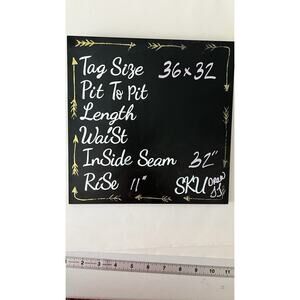 Tag Size 36x32
Pit To Pit
Length
WaiSt
InSide Seam 32"
RiSe 11" SKU
1 2 3 4 5 6 7 8 9 10 11